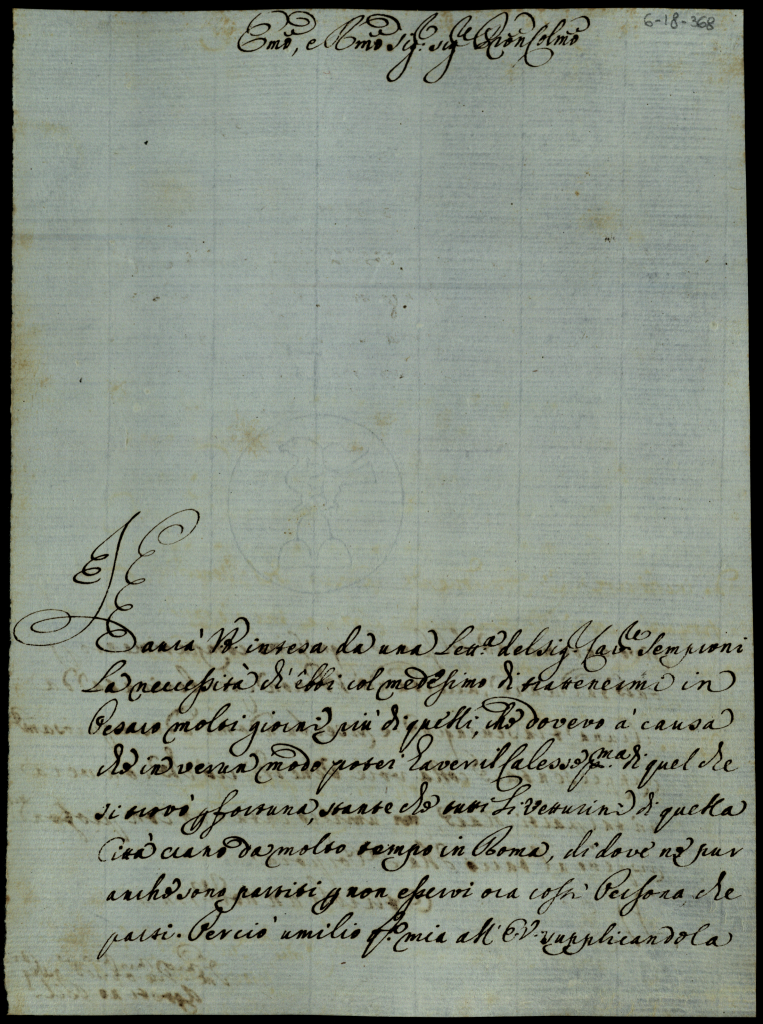 6-18-368
Emo, e Rmo Sig: Sig.re Pron Colmo
Haurà VE intesa da una Lett.a del Sig.r Cav.re Semproni
La neccessità ch'ebbi col medesimo di trattenermi in
Pesaro molti giorni più di quelli, che dovevo à causa
che in verun modo potei haver il Calesse p.ma di quel che
si trovò p fortuna, stante che tutti Li Vetturini di quella
Città erano da molto tempo in Roma, di dove ne pur
anche sono partiti p non esservi ora costì Persona che
parti. Perciò umilio q.ta mia all' E.V. supplicandola